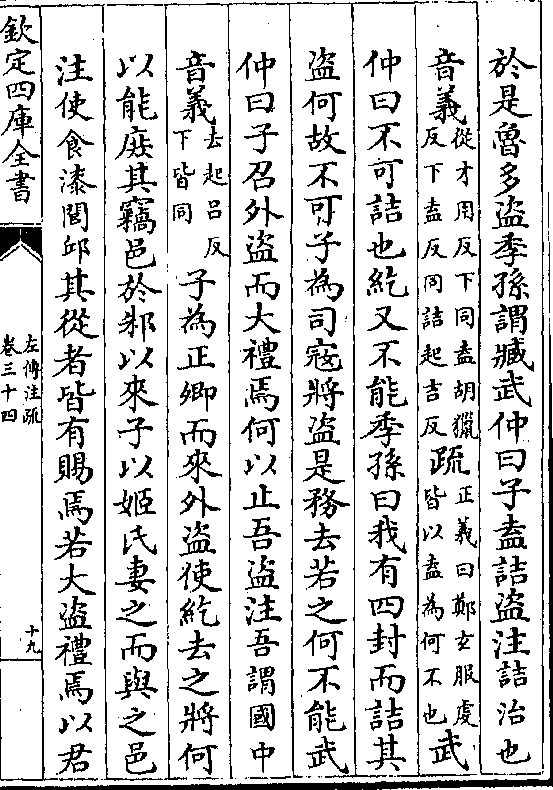 於是魯多盜季孫謂臧武仲曰子盍詰盜注詰治也
音義從才用反下同盍胡獵
反下盍反同詰起吉反
疏正義曰鄭玄服虔
皆以盍為何不也
武
仲曰不可詰也紇又不能季孫曰我有四封而詰其
盜何故不可子為司寇將盜是務去若之何不能武
仲曰子召外盜而大禮焉何以止吾盜注吾謂國中
音義去起呂反
下皆同
子為正卿而來外盜使紇去之將何
以能庶其竊邑於邾以來子以姬氏妻之而與之邑
注使食漆閭邱其從者皆有賜焉若大盜禮焉以君
欽定四庫全書
左傳注疏
卷三十四
十九